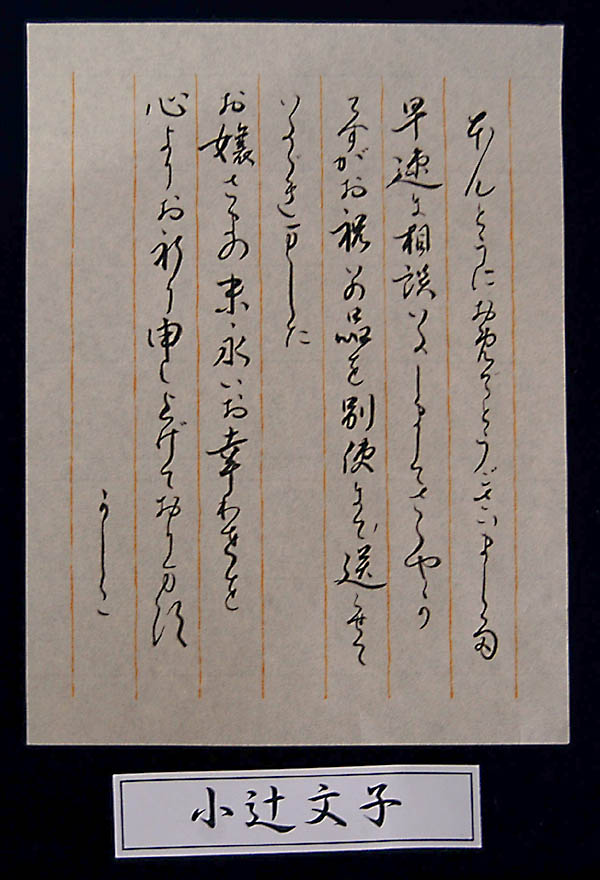 ほんとうにおめでとうございました
早速に相談いたしましてささやか
ですがお祝いの品を別便にて送らせて
いただきました
お嬢さまの末永いお幸わせを
心よりお祈り申し上げております
かしこ
小辻文子